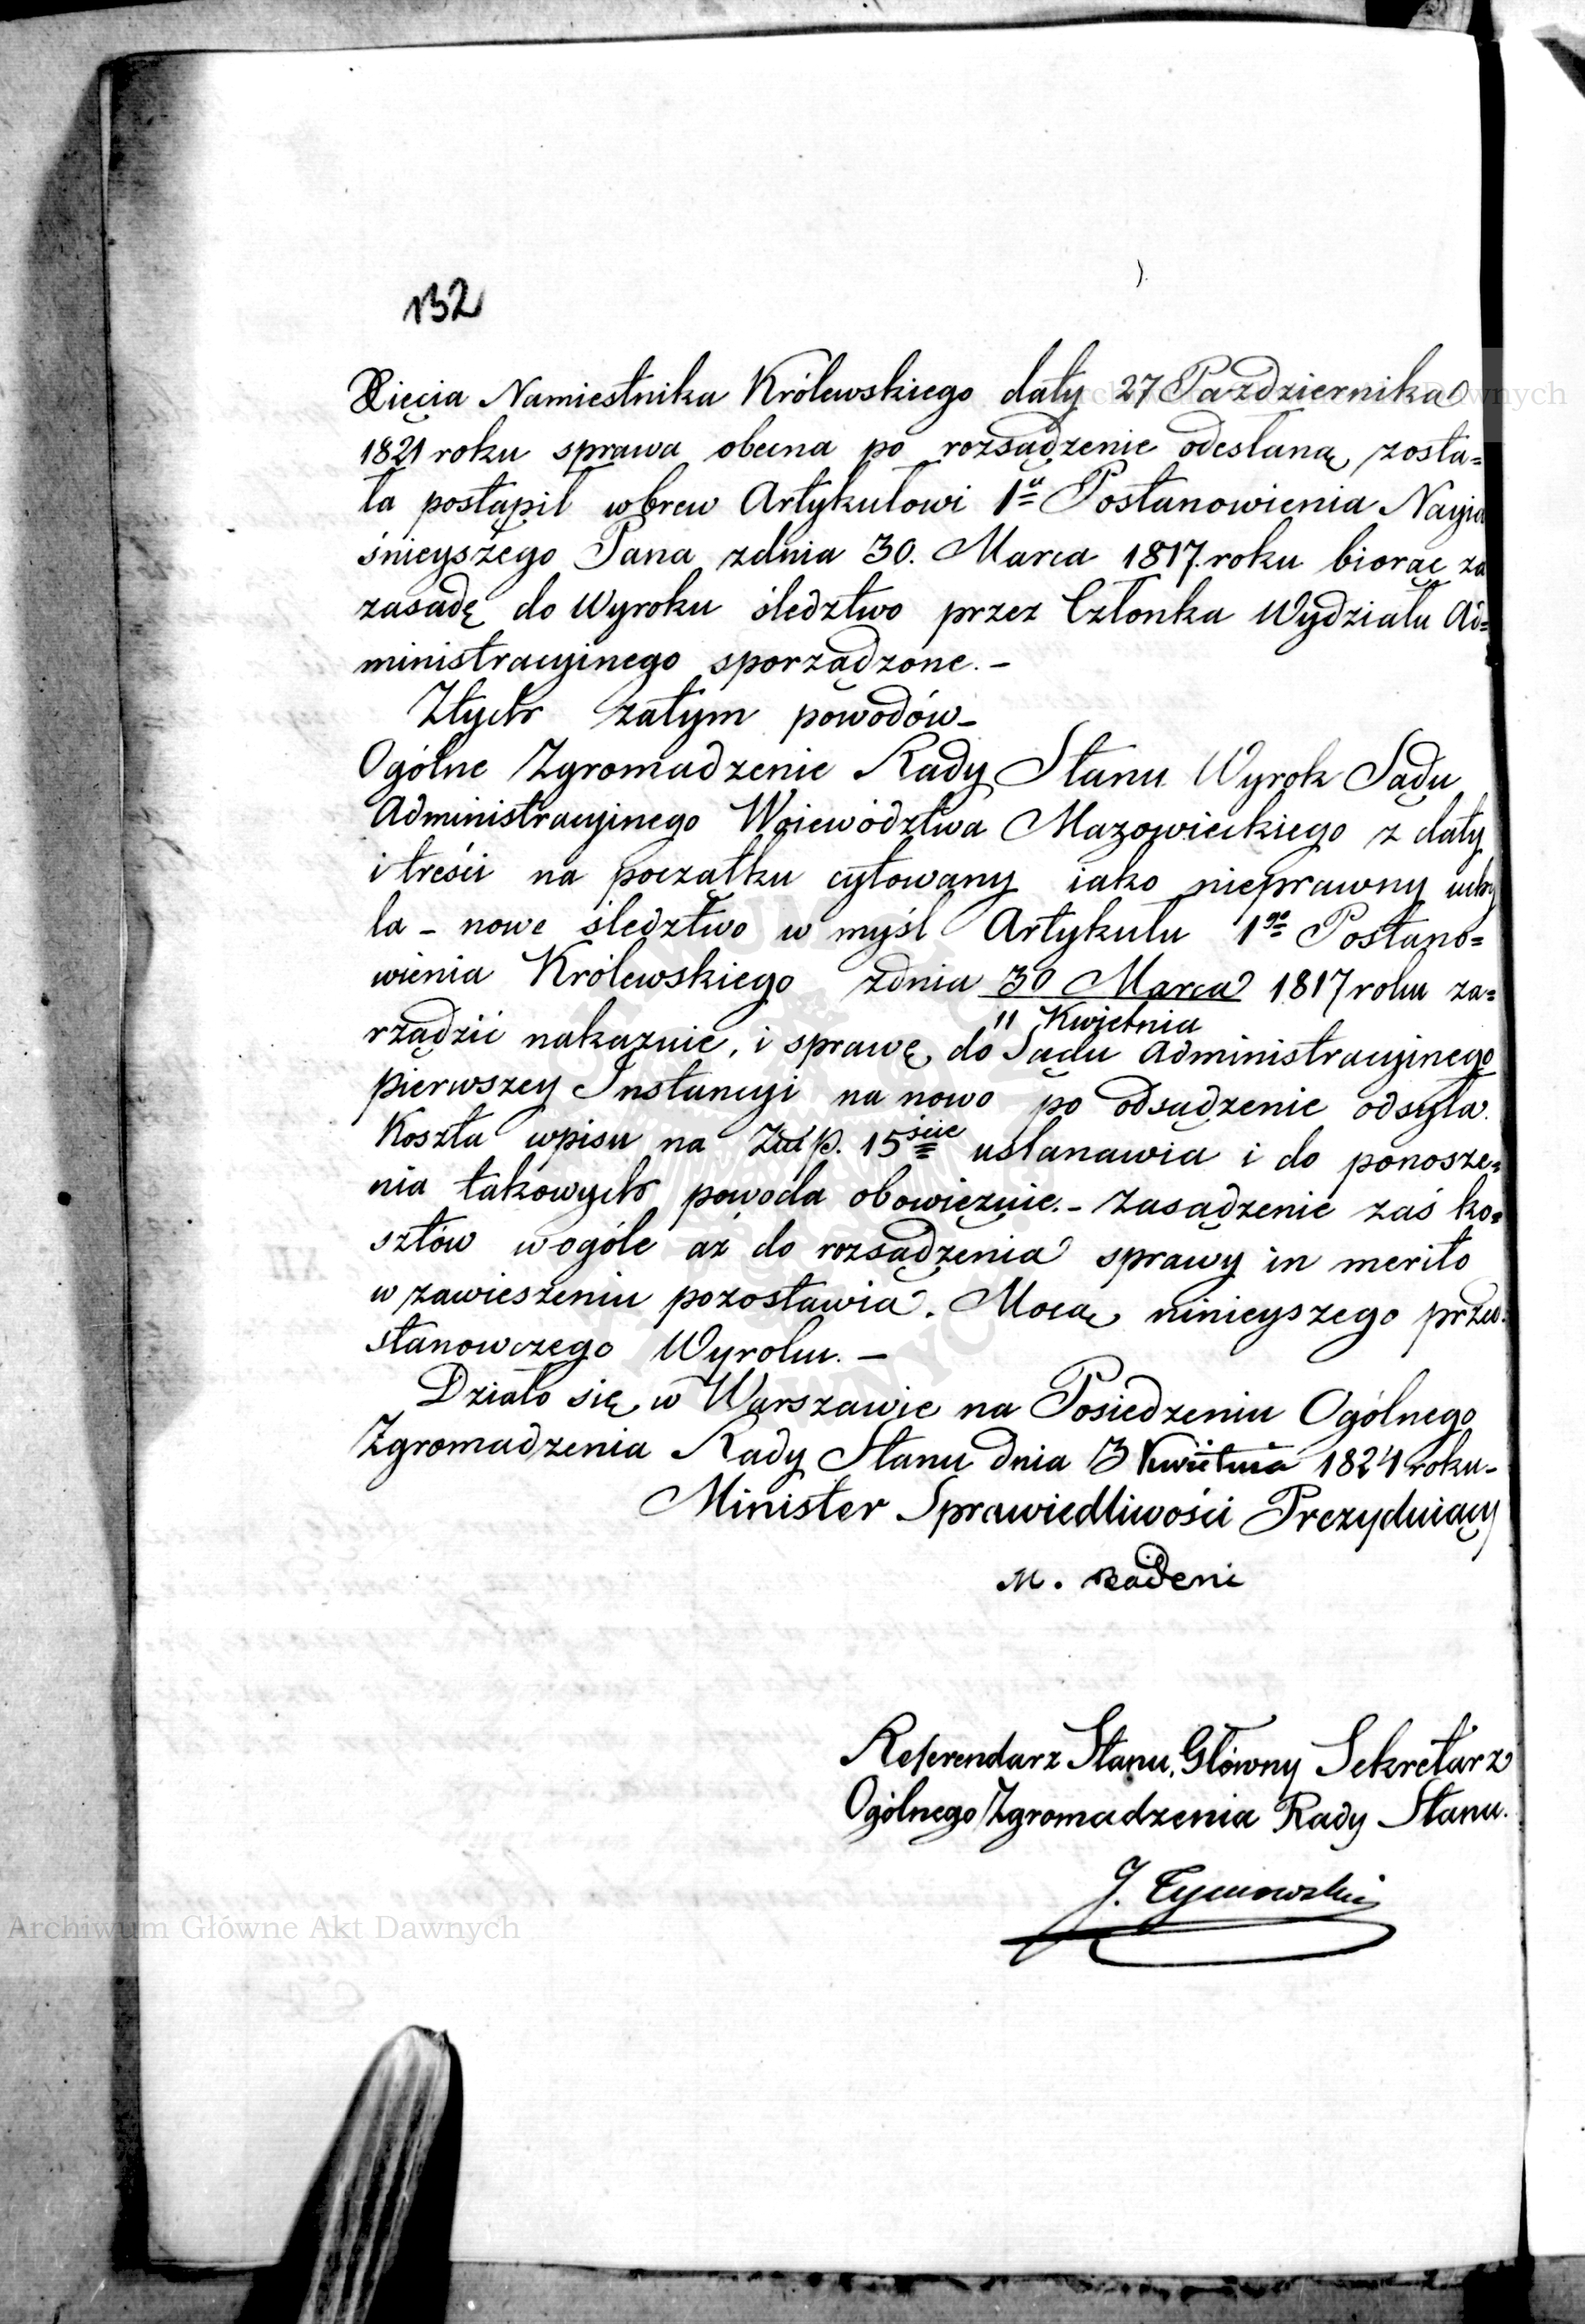 132
Xięcia Namiestnika Królewskiego daty 27 Października
1821 roku sprawa obecna po rozsądzenie odesłaną zosta=
ła postąpił wbrew Artykułowi 1u Postanowienia Nayia
śnieyszego Pana z dnia 30. Marca 1817. roku biorąc za
zasadę do Wyroku śledztwo przez Członka Wydziału Ad=
ministracyinego sporządzone. -
Ztych zatym powodów -
Ogólne Zgromadzenie Rady Stanu Wyrok Sądu
Administracyinego Woiewództwa Mazowieckiego z daty
i treści na początku cytowany iako nieprawny uchy
la - nowe śledztwo w myśl Artykułu 1go Postano=
wienia Królewskiego zdnia 30 Marca 1817 roku za=
11 Kwietnia
rządzić nakazuie, i sprawę do Sądu Administracyinego
pierwszey Instancyi na nowo po odsądzenie odsyła.
Koszta wpisu na Złp. 15ście ustanawia i do ponosze=
nia takowych powoda obowięzuie. - Zasądzenie zaś ko=
sztów wogóle aż do rozsądzenia sprawy in merito
w zawieszeniu pozostawia. Mocą ninieyszego przed
stanowczego Wyroku. -
Działo się w Warszawie na Posiedzeniu Ogólnego
Zgromadzenia Rady Stanu dnia 3 Kwietnia 1824 roku -
Minister Sprawiedliwości Prezyduiący
M. Badeni
Referendarz Stanu, Główny Sekretarz
Ogólnego Zgromadzenia Rady Stanu.
J. Tymowski
Archiwum Główne Akt Dawnych